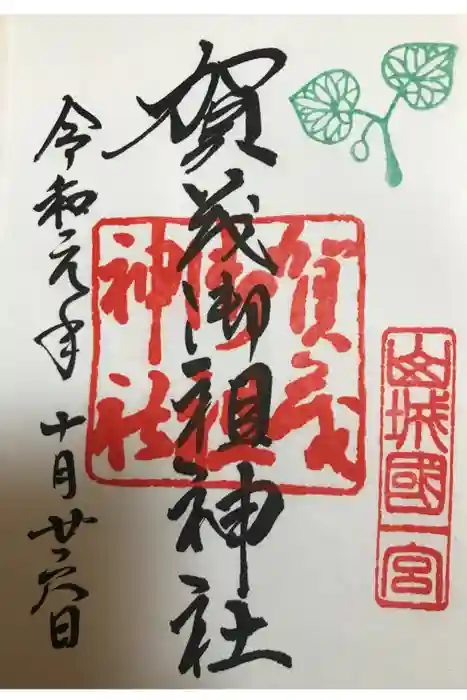 山城國一宮
賀茂御祖神社
賀茂御祖神社
令和元年十月廿六日